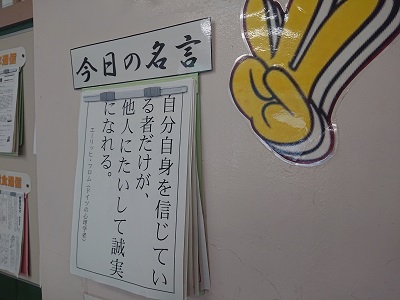 今日の名言
自分自身を信じてい
る者だけが、
他人にたいして誠実
になれる。
エーリッヒ・フロム(ドイツの心理学者)